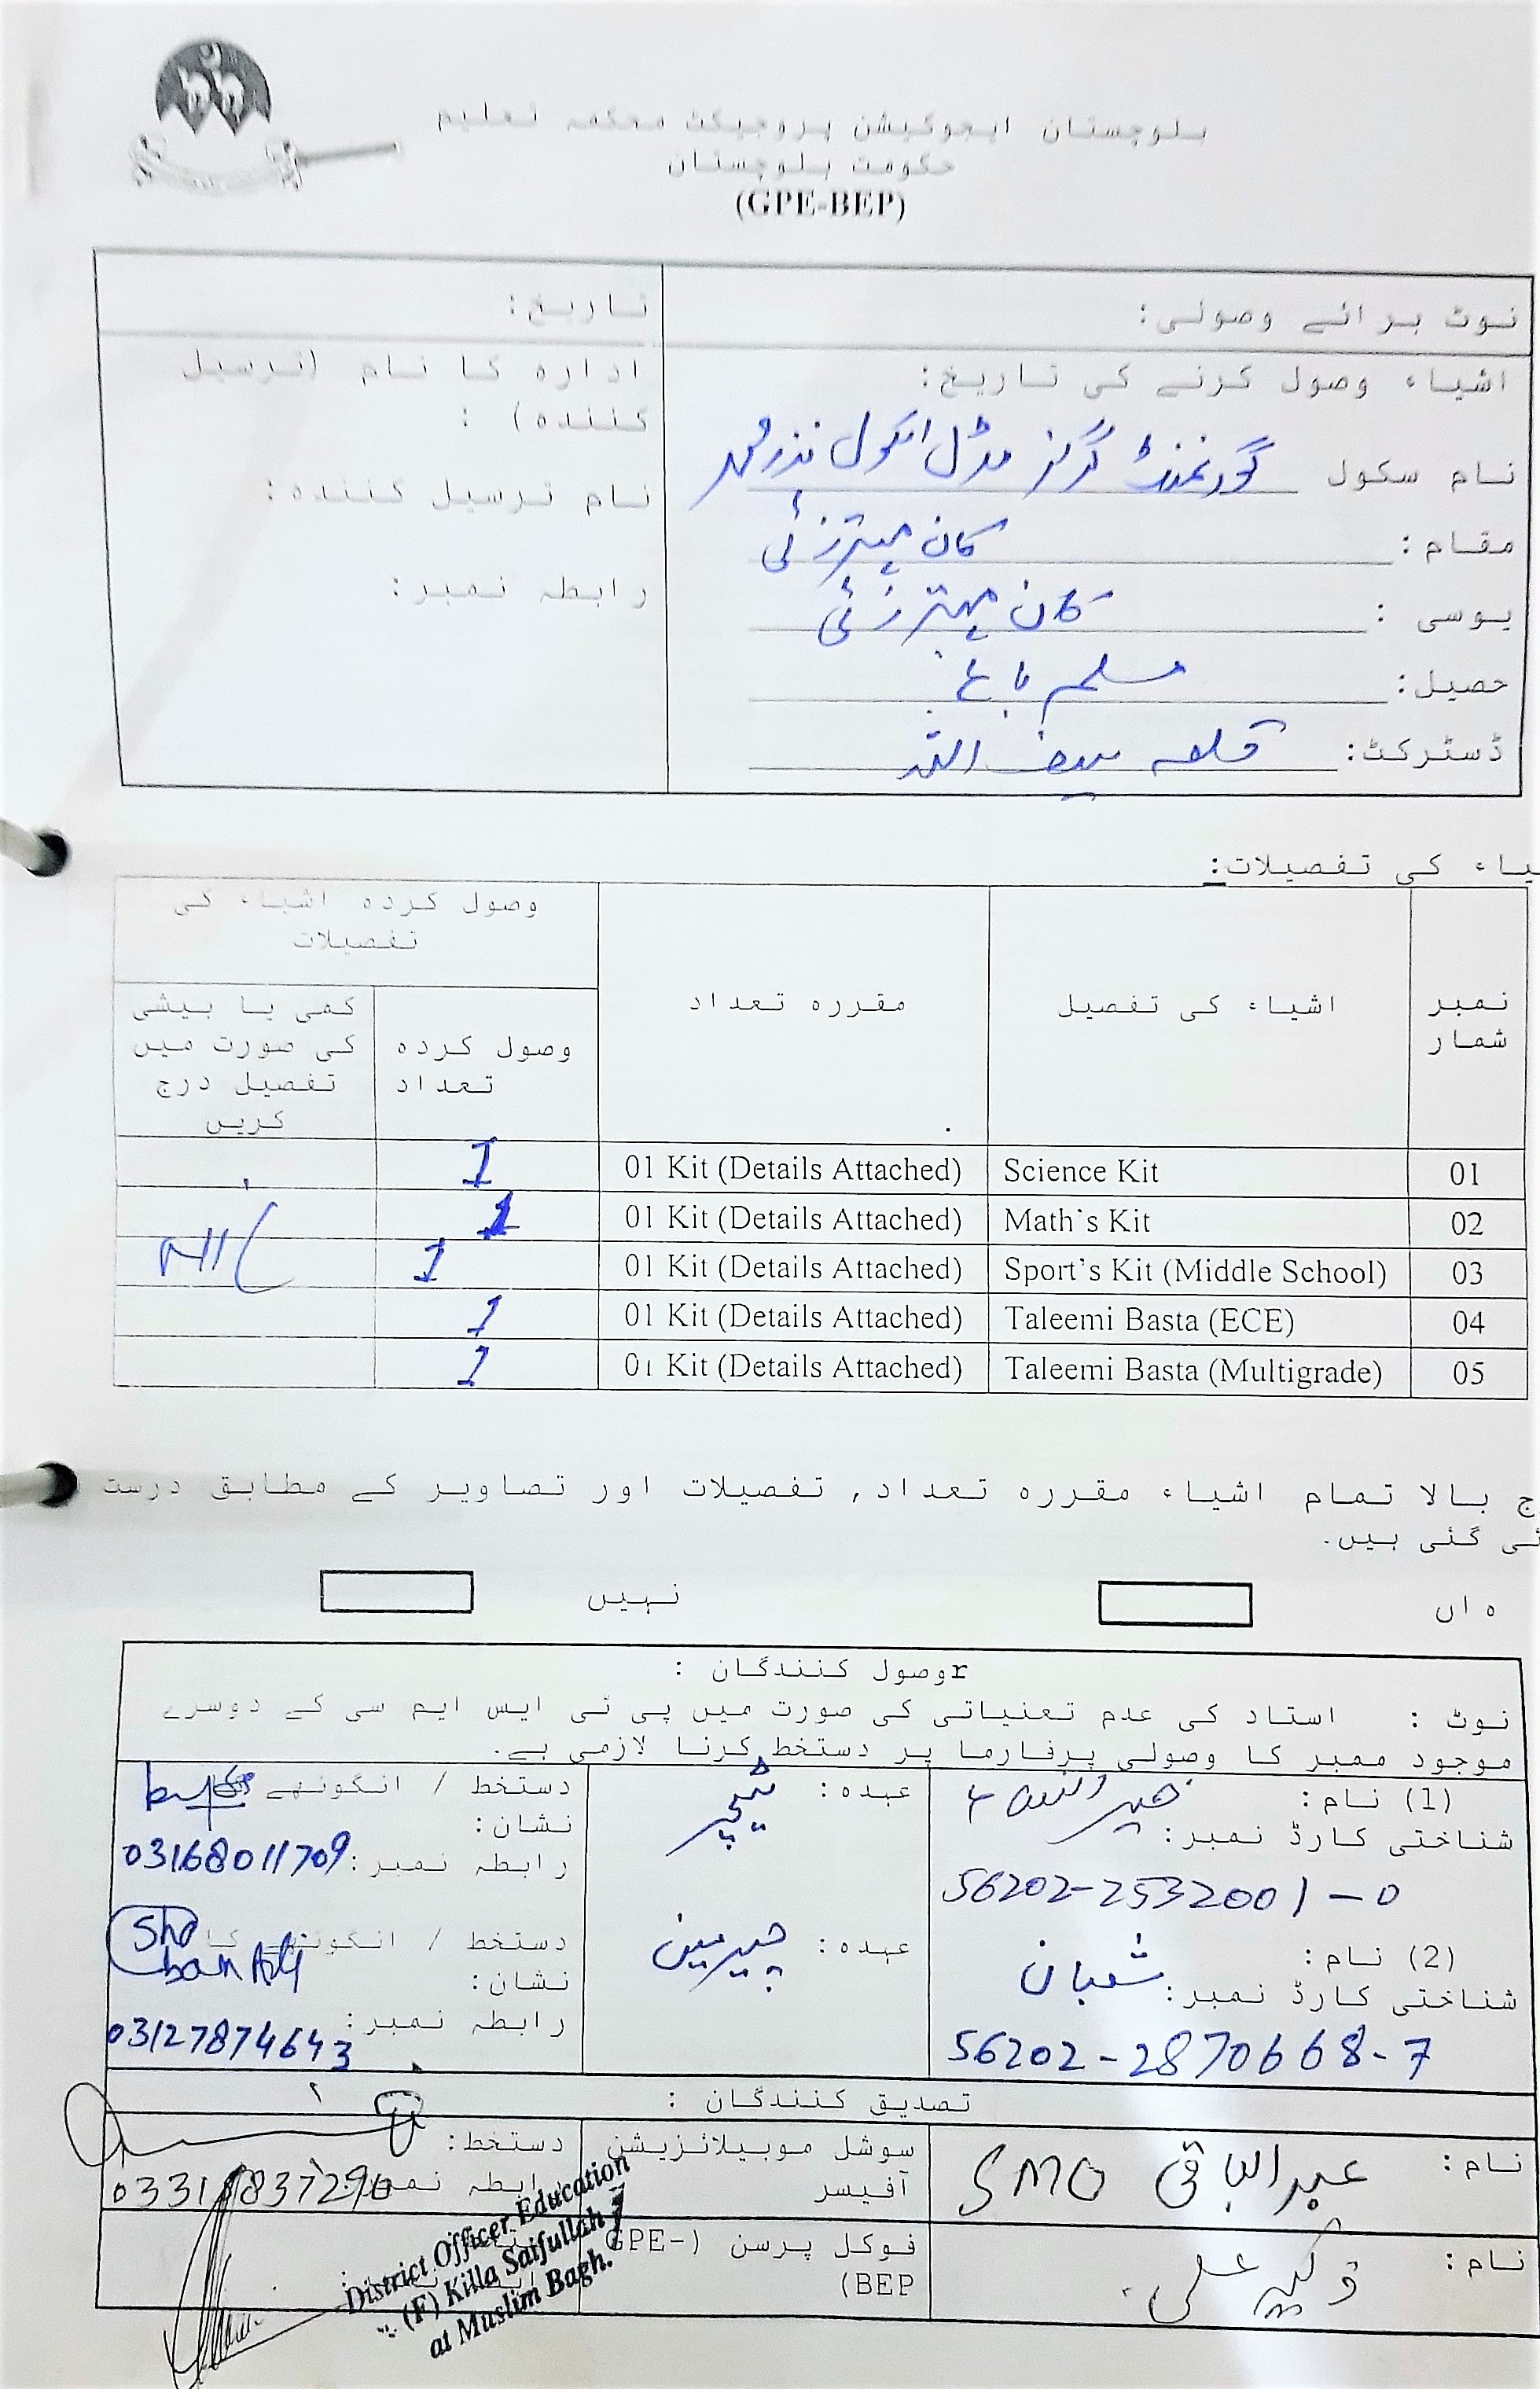 بلوچستان ایجوکیشن پروجیکٹ محکمہ تعلیم
حکومت بلوچستان
(GPE-BEP)
نوٹ برائے وصولی:
تاریخ:
اشیاء وصول کرنے کی تاریخ:
نام سکول گورنمنٹ گرلز مڈل اسکول نذر محمد
مقام: کان مہترزئی
یوسی : کان مہترزئی
حصیل: مسلم باغ
ڈسٹرکٹ: قلعہ سیف اللہ
ادارہ کا نام (ترسیل
کنندہ) :
نام ترسیل کنندہ:
رابطہ نمبر:
یاء کی تفصیلات:
نمبر شمار
اشیاء کی تفصیل
مقررہ تعداد
وصول کردہ اشیاء کی
تفصیلات
وصول کردہ
تعداد
کمی یا بیشی
کی صورت میں
تفصیل درج
کریں
01 Science Kit 01 Kit (Details Attached) 1
02 Math's Kit 01 Kit (Details Attached) 1
03 Sport's Kit (Middle School) 01 Kit (Details Attached) 1
04 Taleemi Basta (ECE) 01 Kit (Details Attached) 1
05 Taleemi Basta (Multigrade) 01 Kit (Details Attached) 1
ج بالا تمام اشیاء مقررہ تعداد, تفصیلات اور تصاویر کے مطابق درست
ئی گئی ہیں.
ہاں
نہیں
rوصول کنندگان :
نوٹ : استاد کی عدم تعنیاتی کی صورت میں پی ٹی ایس ایم سی کے دوسرے
موجود ممبر کا وصولی پرفارما پر دستخط کرنا لازمی ہے.
(1) نام: خیر النساء
شناختی کارڈ نمبر:
56202-2532001-0
عہدہ: ٹیچر
دستخط / انگوٹھے
نشان:
رابطہ نمبر: 03168011709
(2) نام: شعبان
شناختی کارڈ نمبر:
56202-2870668-7
عہدہ: چیرمین
دستخط / انگوٹھے کا
Sha
ban Ali
نشان:
رابطہ نمبر:
03127874643
تصدیق کنندگان :
نام: عبدالباقی SMO
سوشل موبیلائزیشن
آفیسر
دستخط:
رابطہ نمبر
نام:
فوکل پرسن (GPE-
BEP)
District Officer Education
(F) Killa Saifullah
at Muslim Bagh.